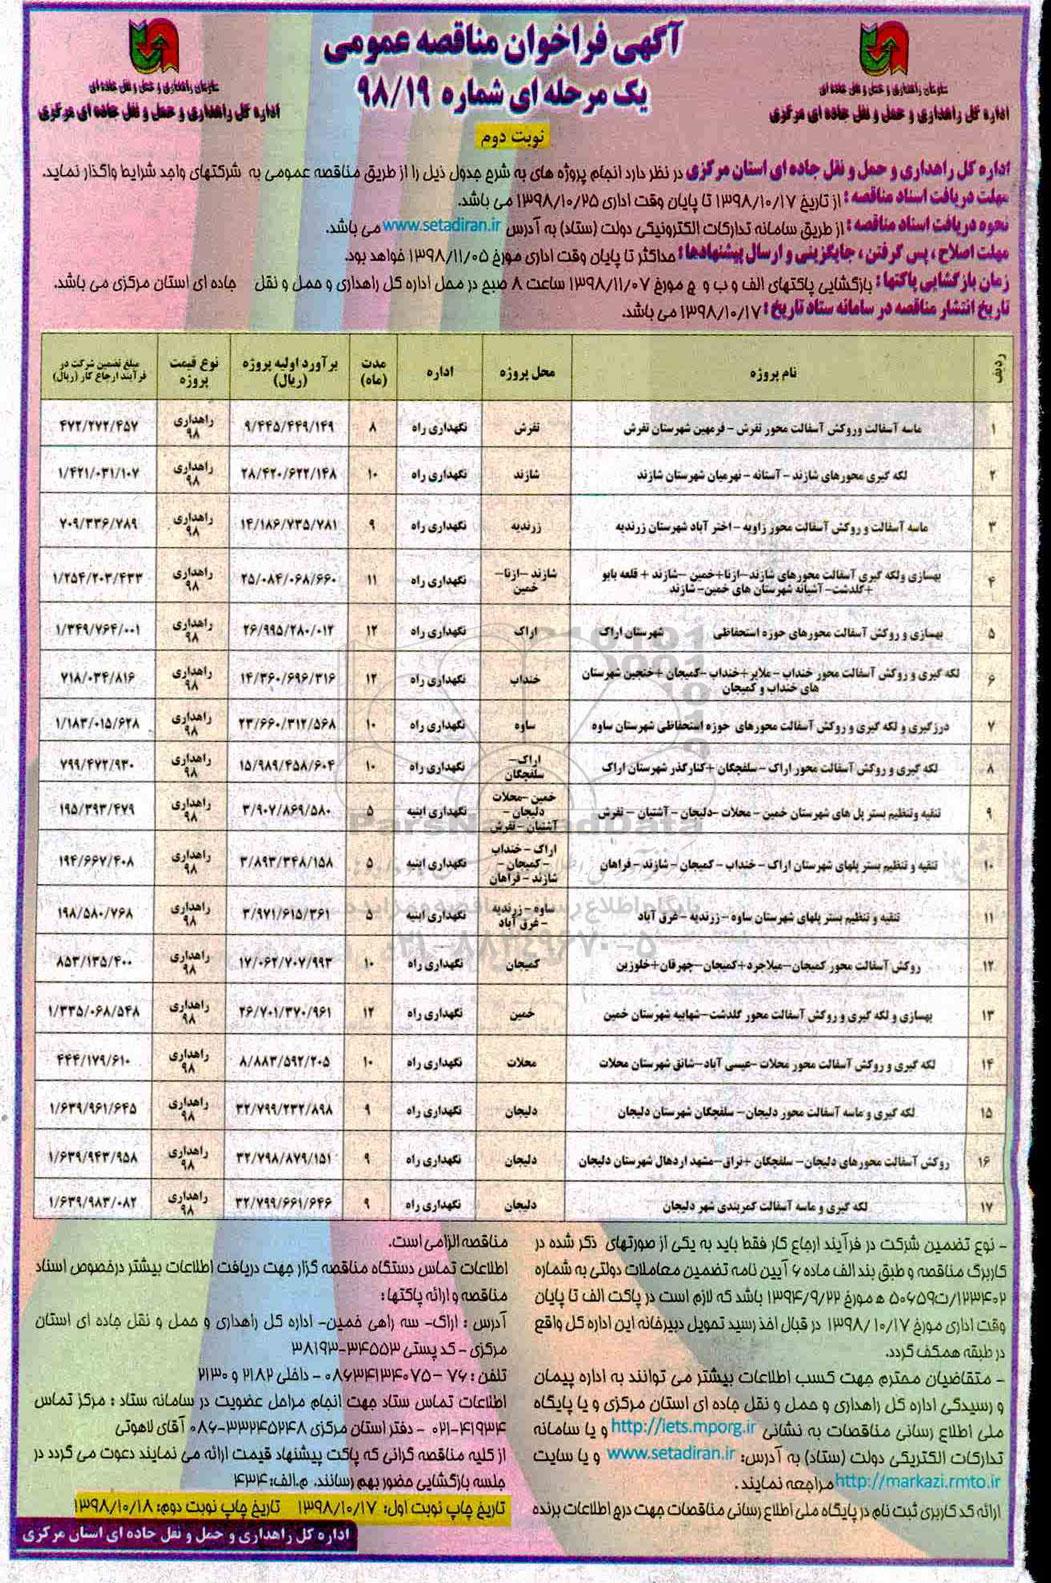 آگهی فراخوان مناقصه عمومی
یک مرحله ای شماره ۹۸/۱۹
نوبت دوم
سازمان راهداری و حمل و نقل جاده ای
اداره کل راهداری و حمل و نقل جاده ای مرکزی
سازمان راهداری و حمل و نقل جاده ای
اداره کل راهداری و حمل و نقل جاده ای مرکزی
اداره کل راهداری و حمل و نقل جاده ای استان مرکزی در نظر دارد انجام پروژه های به شرح جدول ذیل را از طریق مناقصه عمومی به شرکتهای واجد شرایط واگذار نماید.
مهلت دریافت اسناد مناقصه : از تاریخ ۱۳۹۸/۱۰/۱۷ تا پایان وقت اداری ۱۳۹۸/۱۰/۲۵ می باشد.
نحوه دریافت اسناد مناقصه : از طریق سامانه تدارکات الکترونیکی دولت (ستاد) به آدرس www.setadiran.ir می باشد.
مهلت اصلاح ، پس گرفتن ، جایگزینی و ارسال پیشنهادها : حداکثر تا پایان وقت اداری مورخ ۱۳۹۸/۱۱/۰۵ خواهد بود.
زمان بازگشایی پاکتها : بازگشایی پاکتهای الف و ب و ج مورخ ۱۳۹۸/۱۱/۰۷ ساعت ۸ صبح در محل اداره کل راهداری و حمل و نقل جاده ای استان مرکزی می باشد.
تاریخ انتشار مناقصه در سامانه ستاد تاریخ : ۱۳۹۸/۱۰/۱۷ می باشد.
ردیف نام پروژه محل پروژه اداره مدت (ماه) برآورد اولیه پروژه (ریال) نوع قیمت پروژه مبلغ تضمین شرکت در فرآیند ارجاع کار (ریال)
۱ ماسه آسفالت وروکش آسفالت محور تفرش - فرمهین شهرستان تفرش تفرش نگهداری راه ۸ ۹/۴۴۵/۴۴۹/۱۴۹ راهداری ۹۸ ۴۷۲/۲۷۲/۴۵۷
۲ لکه گیری محورهای شازند - آستانه - نهرمیان شهرستان شازند شازند نگهداری راه ۱۰ ۲۸/۴۲۰/۶۲۲/۱۴۸ راهداری ۹۸ ۱/۴۲۱/۰۳۱/۱۰۷
۳ ماسه آسفالت و روکش آسفالت محور زاویه - اختر آباد شهرستان زرندیه زرندیه نگهداری راه ۹ ۱۴/۱۸۶/۷۳۵/۷۸۱ راهداری ۹۸ ۷۰۹/۳۳۶/۷۸۹
۴ بهسازی ولکه گیری آسفالت محورهای شازند-ازنا+خمین -شازند + قلعه بابو +گلدشت- آشیانه شهرستان های خمین- شازند شازند -ازنا- خمین نگهداری راه ۱۱ ۲۵/۰۸۴/۰۶۸/۶۶۰ راهداری ۹۸ ۱/۲۵۴/۲۰۳/۴۳۳
۵ بهسازی و روکش آسفالت محورهای حوزه استحفاظی شهرستان اراک اراک نگهداری راه ۱۲ ۲۶/۹۹۵/۲۸۰/۰۱۲ راهداری ۹۸ ۱/۳۴۹/۷۶۴/۰۰۱
۶ لکه گیری و روکش آسفالت محور خنداب - ملایر+خنداب -کمیجان +خنجین شهرستان های خنداب و کمیجان خنداب نگهداری راه ۱۲ ۱۴/۳۶۰/۶۹۶/۳۱۶ راهداری ۹۸ ۷۱۸/۰۳۴/۸۱۶
۷ درزگیری و لکه گیری و روکش آسفالت محورهای حوزه استحفاظی شهرستان ساوه ساوه نگهداری راه ۱۰ ۲۳/۶۶۰/۳۱۲/۵۶۸ راهداری ۹۸ ۱/۱۸۳/۰۱۵/۶۲۸
۸ لکه گیری و روکش آسفالت محور اراک - سلفچگان +کنارگذر شهرستان اراک اراک- سلفچگان نگهداری راه ۱۰ ۱۵/۹۸۹/۴۵۸/۶۰۴ راهداری ۹۸ ۷۹۹/۴۷۲/۹۳۰
۹ تنقیه وتنظیم بستر پل های شهرستان خمین - محلات -دلیجان - آشتیان - تفرش خمین -محلات دلیجان - آشتیان - تفرش نگهداری ابنیه ۵ ۳/۹۰۷/۸۶۹/۵۸۰ راهداری ۹۸ ۱۹۵/۳۹۳/۴۷۹
۱۰ تنقیه و تنظیم بستر پلهای شهرستان اراک - خنداب - کمیجان - شازند - فراهان اراک - خنداب -کمیجان - شازند - فراهان نگهداری ابنیه ۵ ۳/۸۹۳/۳۴۸/۱۵۸ راهداری ۹۸ ۱۹۴/۶۶۷/۴۰۸
۱۱ تنقیه و تنظیم بستر پلهای شهرستان ساوه - زرندیه - غرق آباد ساوه - زرندیه - غرق آباد نگهداری ابنیه ۵ ۳/۹۷۱/۶۱۵/۳۶۱ راهداری ۹۸ ۱۹۸/۵۸۰/۷۶۸
۱۲ روکش آسفالت محور کمیجان-میلاجرد+کمیجان-چهرقان+خلوزین کمیجان نگهداری راه ۱۰ ۱۷/۰۶۲/۷۰۷/۹۹۳ راهداری ۹۸ ۸۵۳/۱۳۵/۴۰۰
۱۳ بهسازی و لکه گیری و روکش آسفالت محور گلدشت-شهابیه شهرستان خمین خمین نگهداری راه ۱۲ ۲۶/۷۰۱/۳۷۰/۹۶۱ راهداری ۹۸ ۱/۳۳۵/۰۶۸/۵۴۸
۱۴ لکه گیری و روکش آسفالت محور محلات -عیسی آباد-شانق شهرستان محلات محلات نگهداری راه ۱۰ ۸/۸۸۳/۵۹۲/۲۰۵ راهداری ۹۸ ۴۴۴/۱۷۹/۶۱۰
۱۵ لکه گیری و ماسه آسفالت محور دلیجان- سلفچگان شهرستان دلیجان دلیجان نگهداری راه ۹ ۳۲/۷۹۹/۲۳۲/۸۹۸ راهداری ۹۸ ۱/۶۳۹/۹۶۱/۶۴۵
۱۶ روکش آسفالت محورهای دلیجان- سلفچگان +نراق-مشهد اردهال شهرستان دلیجان دلیجان نگهداری راه ۹ ۳۲/۷۹۸/۸۷۹/۱۵۱ راهداری ۹۸ ۱/۶۳۹/۹۴۳/۹۵۸
۱۷ لکه گیری و ماسه آسفالت کمربندی شهر دلیجان دلیجان نگهداری راه ۹ ۳۲/۷۹۹/۶۶۱/۶۴۶ راهداری ۹۸ ۱/۶۳۹/۹۸۳/۰۸۲
- نوع تضمین شرکت در فرآیند ارجاع کار فقط باید به یکی از صورتهای ذکر شده در
کاربرگ مناقصه و طبق بند الف ماده ۶ آیین نامه تضمین معاملات دولتی به شماره
۱۲۳۴۰۲/ت۵۰۶۵۹ ه مورخ ۱۳۹۴/۹/۲۲ باشد که لازم است در پاکت الف تا پایان
وقت اداری مورخ ۱۳۹۸/۱۰/۱۷ در قبال اخذ رسید تحویل دبیرخانه این اداره کل واقع
در طبقه همکف گردد.
- متقاضیان محترم جهت کسب اطلاعات بیشتر می توانند به اداره پیمان
و رسیدگی اداره کل راهداری و حمل و نقل جاده ای استان مرکزی و یا پایگاه
ملی اطلاع رسانی مناقصات به نشانی http://iets.mporg.ir و یا سامانه
تدارکات الکتریکی دولت (ستاد) به آدرس: www.setadiran.ir و یا سایت
http://markazi.rmto.ir مراجعه نمایند.
ارائه کد کاربری ثبت نام در پایگاه ملی اطلاع رسانی مناقصات جهت درج اطلاعات برنده
مناقصه الزامی است.
اطلاعات تماس دستگاه مناقصه گزار جهت دریافت اطلاعات بیشتر درخصوص اسناد
مناقصه و ارائه پاکتها :
آدرس : اراک- سه راهی خمین- اداره کل راهداری و حمل و نقل جاده ای استان
مرکزی - کد پستی ۳۴۵۵۳-۳۸۱۹۳
تلفن : ۷۶ -۰۸۶۳۴۱۳۴۰۷۵ - داخلی ۲۱۸۲ و ۲۱۳۰
اطلاعات تماس ستاد جهت انجام مراحل عضویت در سامانه ستاد : مرکز تماس
۰۲۱-۴۱۹۳۴ - دفتر استان مرکزی ۰۸۶-۳۳۲۴۵۲۴۸ آقای لاهوتی
از کلیه مناقصه گرانی که پاکت پیشنهاد قیمت ارائه می نمایند دعوت می گردد در
جلسه بازگشایی حضور بهم رسانند. م.الف: ۴۳۴
تاریخ چاپ نوبت اول: ۱۳۹۸/۱۰/۱۷ تاریخ چاپ نوبت دوم: ۱۳۹۸/۱۰/۱۸
اداره کل راهداری و حمل و نقل جاده ای استان مرکزی
ParsNamadData
پایگاه اطلاع رسانی مناقصه و مزایده
۰۲۱-۸۸۳۴۹۶۷۰-۵